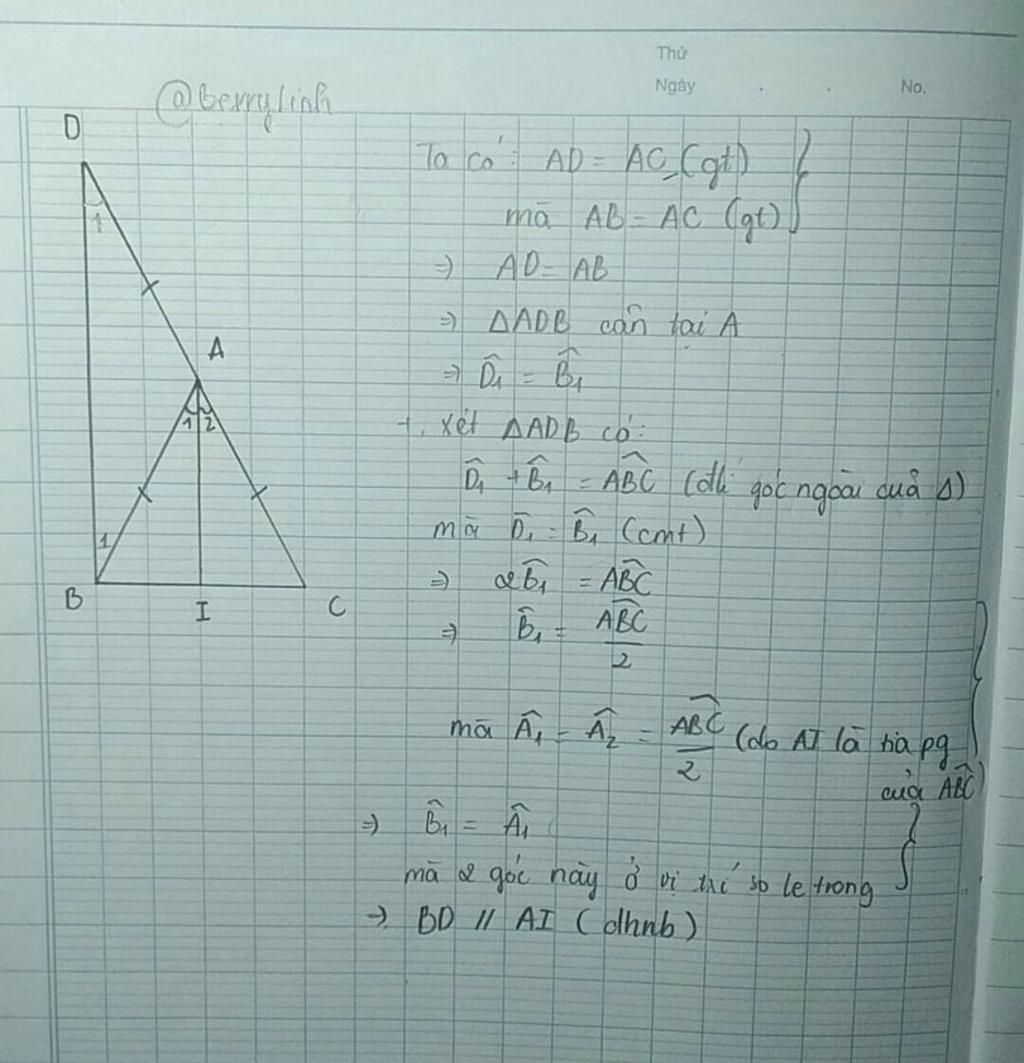 Thứ
Ngày . . No.
@Berrylinh
D
1
A
1 2
1
B
I
C
Ta có: AD = AC (gt)
mà AB = AC (gt)
⇒ AD = AB
⇒ ΔADB cân tại A
⇒ D̂₁ = B̂₁
+. Xét ΔADB có:
D̂₁ + B̂₁ = \widehat{ABC} (đl góc ngoài cuả Δ)
mà D̂₁ = B̂₁ (cmt)
⇒ 2B̂₁ = \widehat{ABC}
⇒ B̂₁ = \widehat{ABC}/2
mà Â₁ = Â₂ = \widehat{ABC}/2 (do AI là tia pg
của \widehat{ABC})
⇒ B̂₁ = Â₁
mà 2 góc này ở vị trí so le trong
⇒ BD // AI (dhnb)